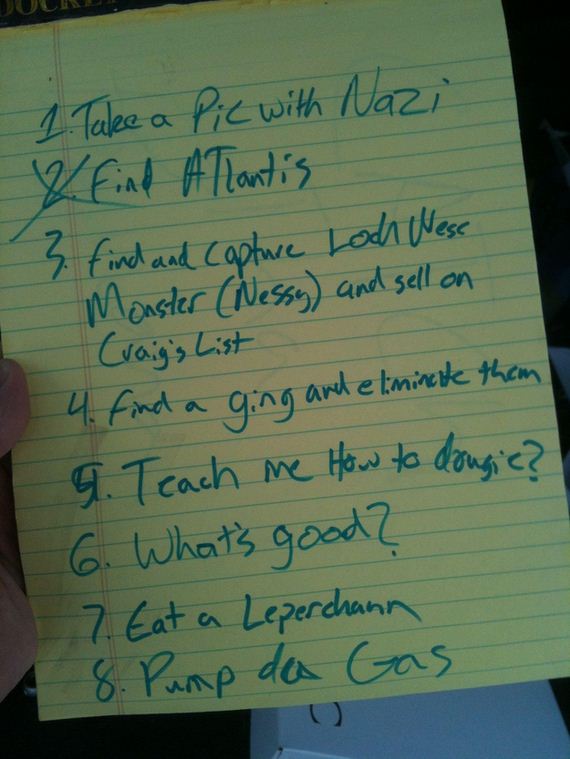 DOCKET
1. Take a Pic with Nazi
2. Find ATlantis
3. find and capture Loch Ness
Monster (Nessy) and sell on
Craig's List
4. find a ging and eliminate them
5. Teach me How to dougie?
6. What's good?
7. Eat a Leperchann
8. Pump da Gas